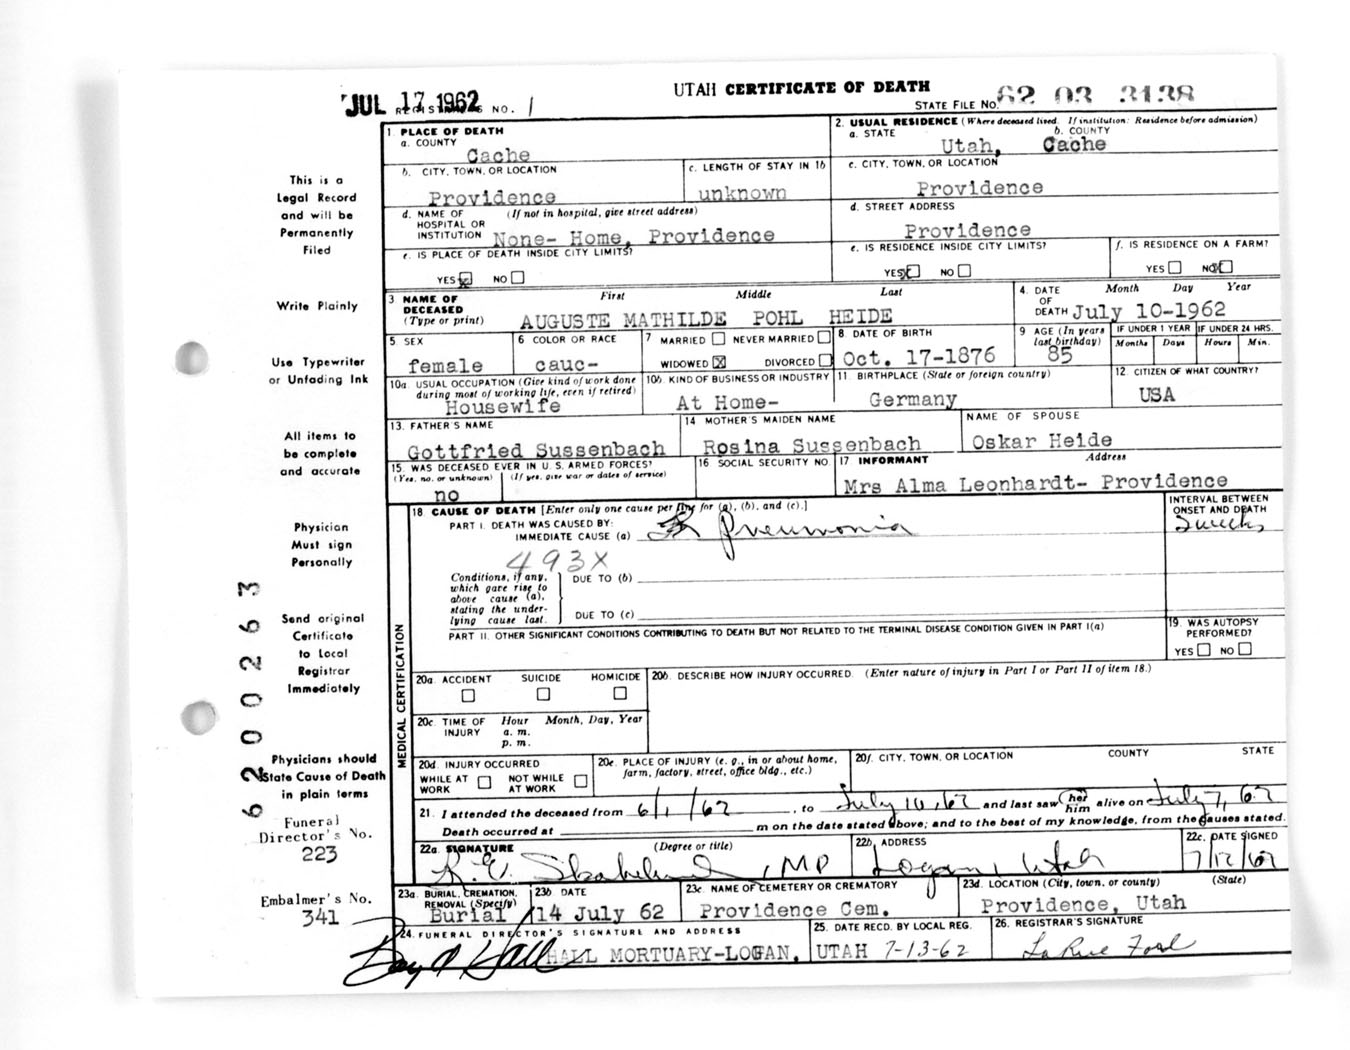 JUL 17 1962 REGISTRAR'S NO. 1
UTAH CERTIFICATE OF DEATH
STATE FILE NO. 62 03 3138
This is a
Legal Record
and will be
Permanently
Filed
Write Plainly
Use Typewriter
or Unfading Ink
All items to
be complete
and accurate
Physician
Must sign
Personally
Send original
Certificate
to Local
Registrar
Immediately
Physicians should
State Cause of Death
in plain terms
Funeral
Director's No.
223
Embalmer's No.
341
62 00263
1. PLACE OF DEATH
a. COUNTY
Cache
2. USUAL RESIDENCE (Where deceased lived. If institution: Residence before admission)
a. STATE b. COUNTY
Utah, Cache
b. CITY, TOWN, OR LOCATION
Providence
c. LENGTH OF STAY IN 1b
unknown
c. CITY, TOWN, OR LOCATION
Providence
d. NAME OF (If not in hospital, give street address)
HOSPITAL OR
INSTITUTION None- Home, Providence
d. STREET ADDRESS
Providence
e. IS PLACE OF DEATH INSIDE CITY LIMITS?
YES X NO
e. IS RESIDENCE INSIDE CITY LIMITS?
YES X NO
f. IS RESIDENCE ON A FARM?
YES NO X
3 NAME OF First Middle Last
DECEASED
(Type or print) AUGUSTE MATHILDE POHL HEIDE
4. DATE Month Day Year
OF
DEATH July 10-1962
5 SEX
female
6 COLOR OR RACE
cauc-
7 MARRIED NEVER MARRIED
WIDOWED X DIVORCED
8 DATE OF BIRTH
Oct. 17-1876
9 AGE (In years
last birthday)
85
IF UNDER 1 YEAR IF UNDER 24 HRS.
Months Days Hours Min.
10a. USUAL OCCUPATION (Give kind of work done
during most of working life, even if retired)
Housewife
10b. KIND OF BUSINESS OR INDUSTRY
At Home-
11 BIRTHPLACE (State or foreign country)
Germany
12 CITIZEN OF WHAT COUNTRY?
USA
13. FATHER'S NAME
Gottfried Sussenbach
14 MOTHER'S MAIDEN NAME
Rosina Sussenbach
NAME OF SPOUSE
Oskar Heide
15. WAS DECEASED EVER IN U. S. ARMED FORCES?
(Yes, no, or unknown) (If yes, give war or dates of service)
no
16 SOCIAL SECURITY NO.
17 INFORMANT Address
Mrs Alma Leonhardt- Providence
MEDICAL CERTIFICATION
18 CAUSE OF DEATH [Enter only one cause per line for (a), (b), and (c).]
PART I. DEATH WAS CAUSED BY:
IMMEDIATE CAUSE (a) Pneumonia
INTERVAL BETWEEN
ONSET AND DEATH
2 weeks
493X
Conditions, if any,
which gave rise to
above cause (a),
stating the under-
lying cause last.
DUE TO (b)
DUE TO (c)
PART II. OTHER SIGNIFICANT CONDITIONS CONTRIBUTING TO DEATH BUT NOT RELATED TO THE TERMINAL DISEASE CONDITION GIVEN IN PART I(a)
19. WAS AUTOPSY
PERFORMED?
YES NO
20a. ACCIDENT SUICIDE HOMICIDE
20b. DESCRIBE HOW INJURY OCCURRED. (Enter nature of injury in Part I or Part II of item 18.)
20c. TIME OF Hour Month, Day, Year
INJURY a. m.
p. m.
20d. INJURY OCCURRED
WHILE AT NOT WHILE
WORK AT WORK
20e. PLACE OF INJURY (e. g., in or about home,
farm, factory, street, office bldg., etc.)
20f. CITY, TOWN, OR LOCATION COUNTY STATE
21. I attended the deceased from 6/1/62, to July 10, 62 and last saw her him alive on July 7, 62
Death occurred at m on the date stated above; and to the best of my knowledge, from the causes stated.
22a. SIGNATURE (Degree or title)
MD
22b. ADDRESS
Logan, Utah
22c. DATE SIGNED
7/12/62
23a. BURIAL, CREMATION,
REMOVAL (Specify)
Burial
23b DATE
14 July 62
23c. NAME OF CEMETERY OR CREMATORY
Providence Cem.
23d. LOCATION (City, town, or county) (State)
Providence, Utah
24. FUNERAL DIRECTOR'S SIGNATURE AND ADDRESS
HALL MORTUARY-LOGAN, UTAH
25. DATE RECD. BY LOCAL REG.
7-13-62
26. REGISTRAR'S SIGNATURE
LaRue